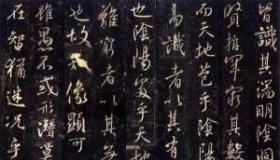 皆識其端明陰洞
賢哲罕窮其數
而天地苞乎陰陽
易識者以其有
也陰陽處乎天地
難窮者以其無
也故知像顯可
雖愚不惑形潛莫
在智猶迷況乎